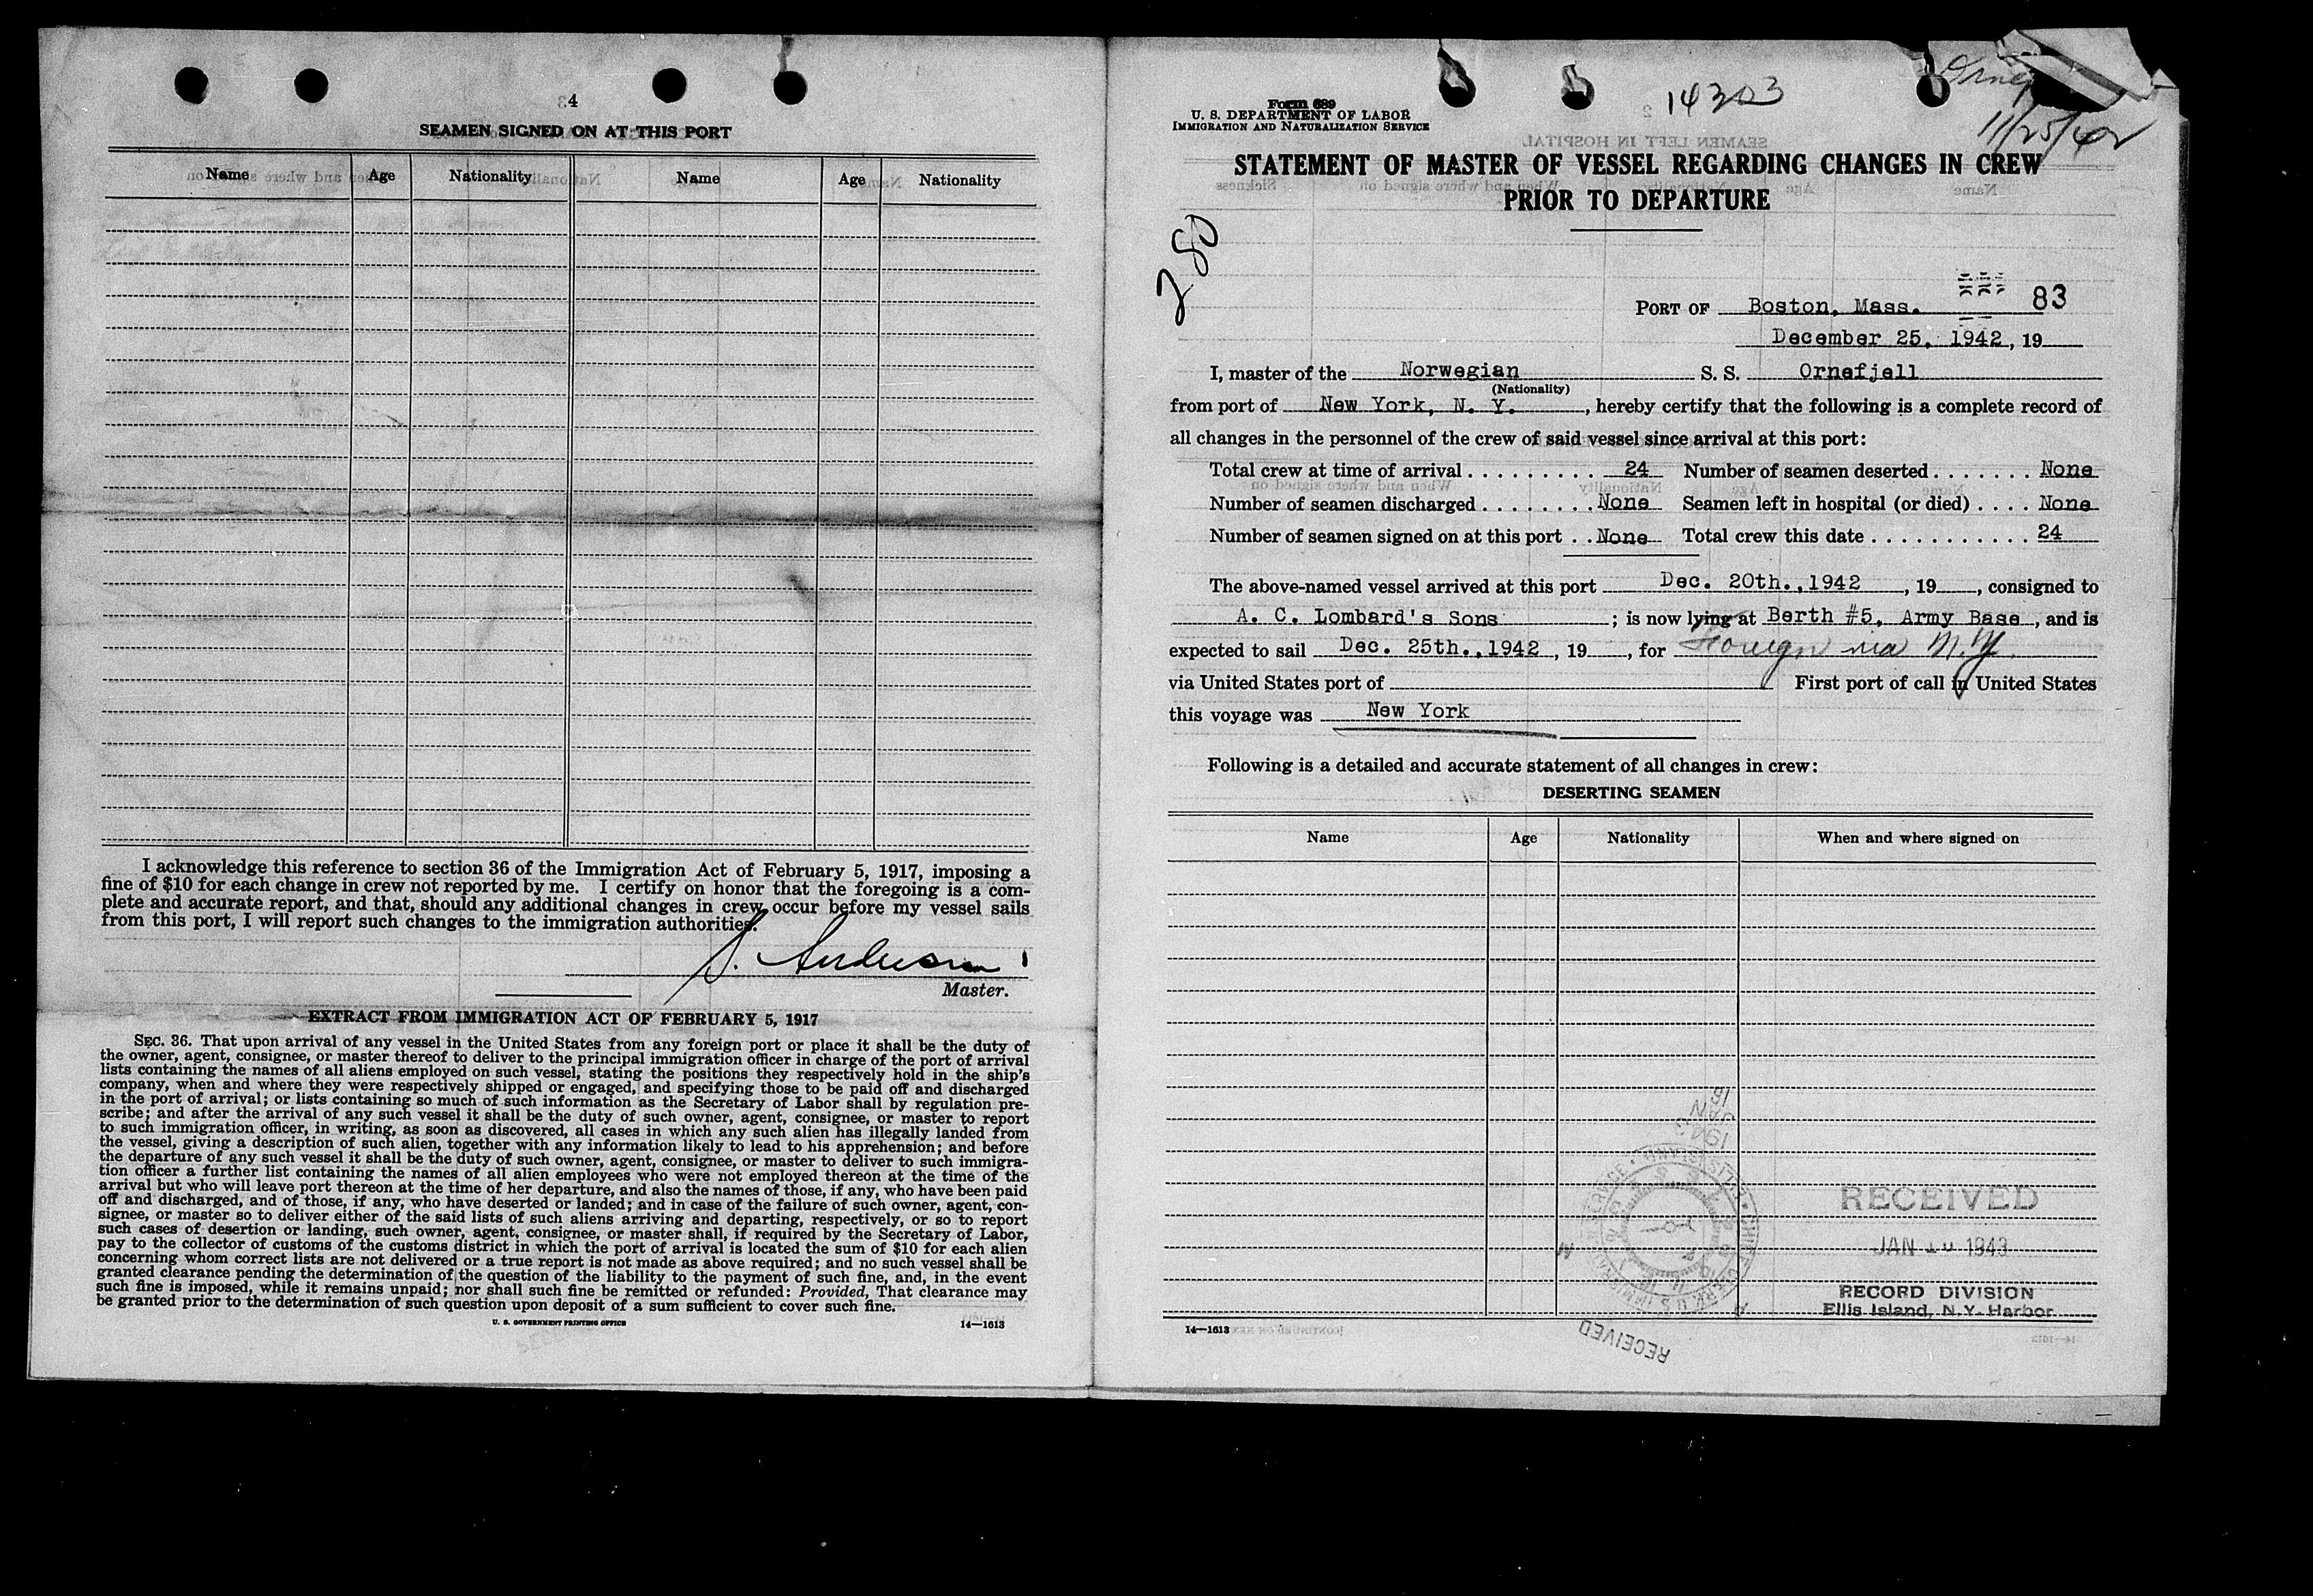 4
SEAMEN SIGNED ON AT THIS PORT
Name Age Nationality Name Age Nationality
I acknowledge this reference to section 36 of the Immigration Act of February 5, 1917, imposing a
fine of $10 for each change in crew not reported by me. I certify on honor that the foregoing is a com-
plete and accurate report, and that, should any additional changes in crew occur before my vessel sails
from this port, I will report such changes to the immigration authorities.
Master.
EXTRACT FROM IMMIGRATION ACT OF FEBRUARY 5, 1917
SEC. 36. That upon arrival of any vessel in the United States from any foreign port or place it shall be the duty of
the owner, agent, consignee, or master thereof to deliver to the principal immigration officer in charge of the port of arrival
lists containing the names of all aliens employed on such vessel, stating the positions they respectively hold in the ship's
company, when and where they were respectively shipped or engaged, and specifying those to be paid off and discharged
in the port of arrival; or lists containing so much of such information as the Secretary of Labor shall by regulation pre-
scribe; and after the arrival of any such vessel it shall be the duty of such owner, agent, consignee, or master to report
to such immigration officer, in writing, as soon as discovered, all cases in which any such alien has illegally landed from
the vessel, giving a description of such alien, together with any information likely to lead to his apprehension; and before
the departure of any such vessel it shall be the duty of such owner, agent, consignee, or master to deliver to such immigra-
tion officer a further list containing the names of all alien employees who were not employed thereon at the time of the
arrival but who will leave port thereon at the time of her departure, and also the names of those, if any, who have been paid
off and discharged, and of those, if any, who have deserted or landed; and in case of the failure of such owner, agent, con-
signee, or master so to deliver either of the said lists of such aliens arriving and departing, respectively, or so to report
such cases of desertion or landing, such owner, agent, consignee, or master shall, if required by the Secretary of Labor,
pay to the collector of customs of the customs district in which the port of arrival is located the sum of $10 for each alien
concerning whom correct lists are not delivered or a true report is not made as above required; and no such vessel shall be
granted clearance pending the determination of the question of the liability to the payment of such fine, and, in the event
such fine is imposed, while it remains unpaid; nor shall such fine be remitted or refunded: Provided, That clearance may
be granted prior to the determination of such question upon deposit of a sum sufficient to cover such fine.
U. S. GOVERNMENT PRINTING OFFICE 14—1613
Form 689
U. S. DEPARTMENT OF LABOR
IMMIGRATION AND NATURALIZATION SERVICE
14303
11/25/42
STATEMENT OF MASTER OF VESSEL REGARDING CHANGES IN CREW
PRIOR TO DEPARTURE
280
PORT OF Boston, Mass. 83
December 25, 1942, 19
I, master of the Norwegian S. S. Ornefjell
(Nationality)
from port of New York, N. Y. , hereby certify that the following is a complete record of
all changes in the personnel of the crew of said vessel since arrival at this port:
Total crew at time of arrival . . . . . . . . . 24 Number of seamen deserted . . . . . . . None
Number of seamen discharged . . . . . . . . None Seamen left in hospital (or died) . . . . None
Number of seamen signed on at this port . . None Total crew this date . . . . . . . . . . . 24
The above-named vessel arrived at this port Dec. 20th.,1942 , 19 , consigned to
A. C. Lombard's Sons ; is now lying at Berth #5, Army Base , and is
expected to sail Dec. 25th.,1942 , 19 , for Foreign via N.Y.
via United States port of First port of call in United States
this voyage was New York
Following is a detailed and accurate statement of all changes in crew:
DESERTING SEAMEN
Name Age Nationality When and where signed on
16
JAN
1943
RECEIVED
JAN 1943
RECORD DIVISION
Ellis Island, N.Y. Harbor
14—1613
RECEIVED